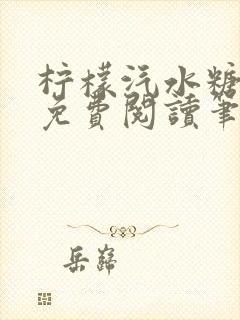 柠檬汽水糖
免費閱讀筆
岳巋